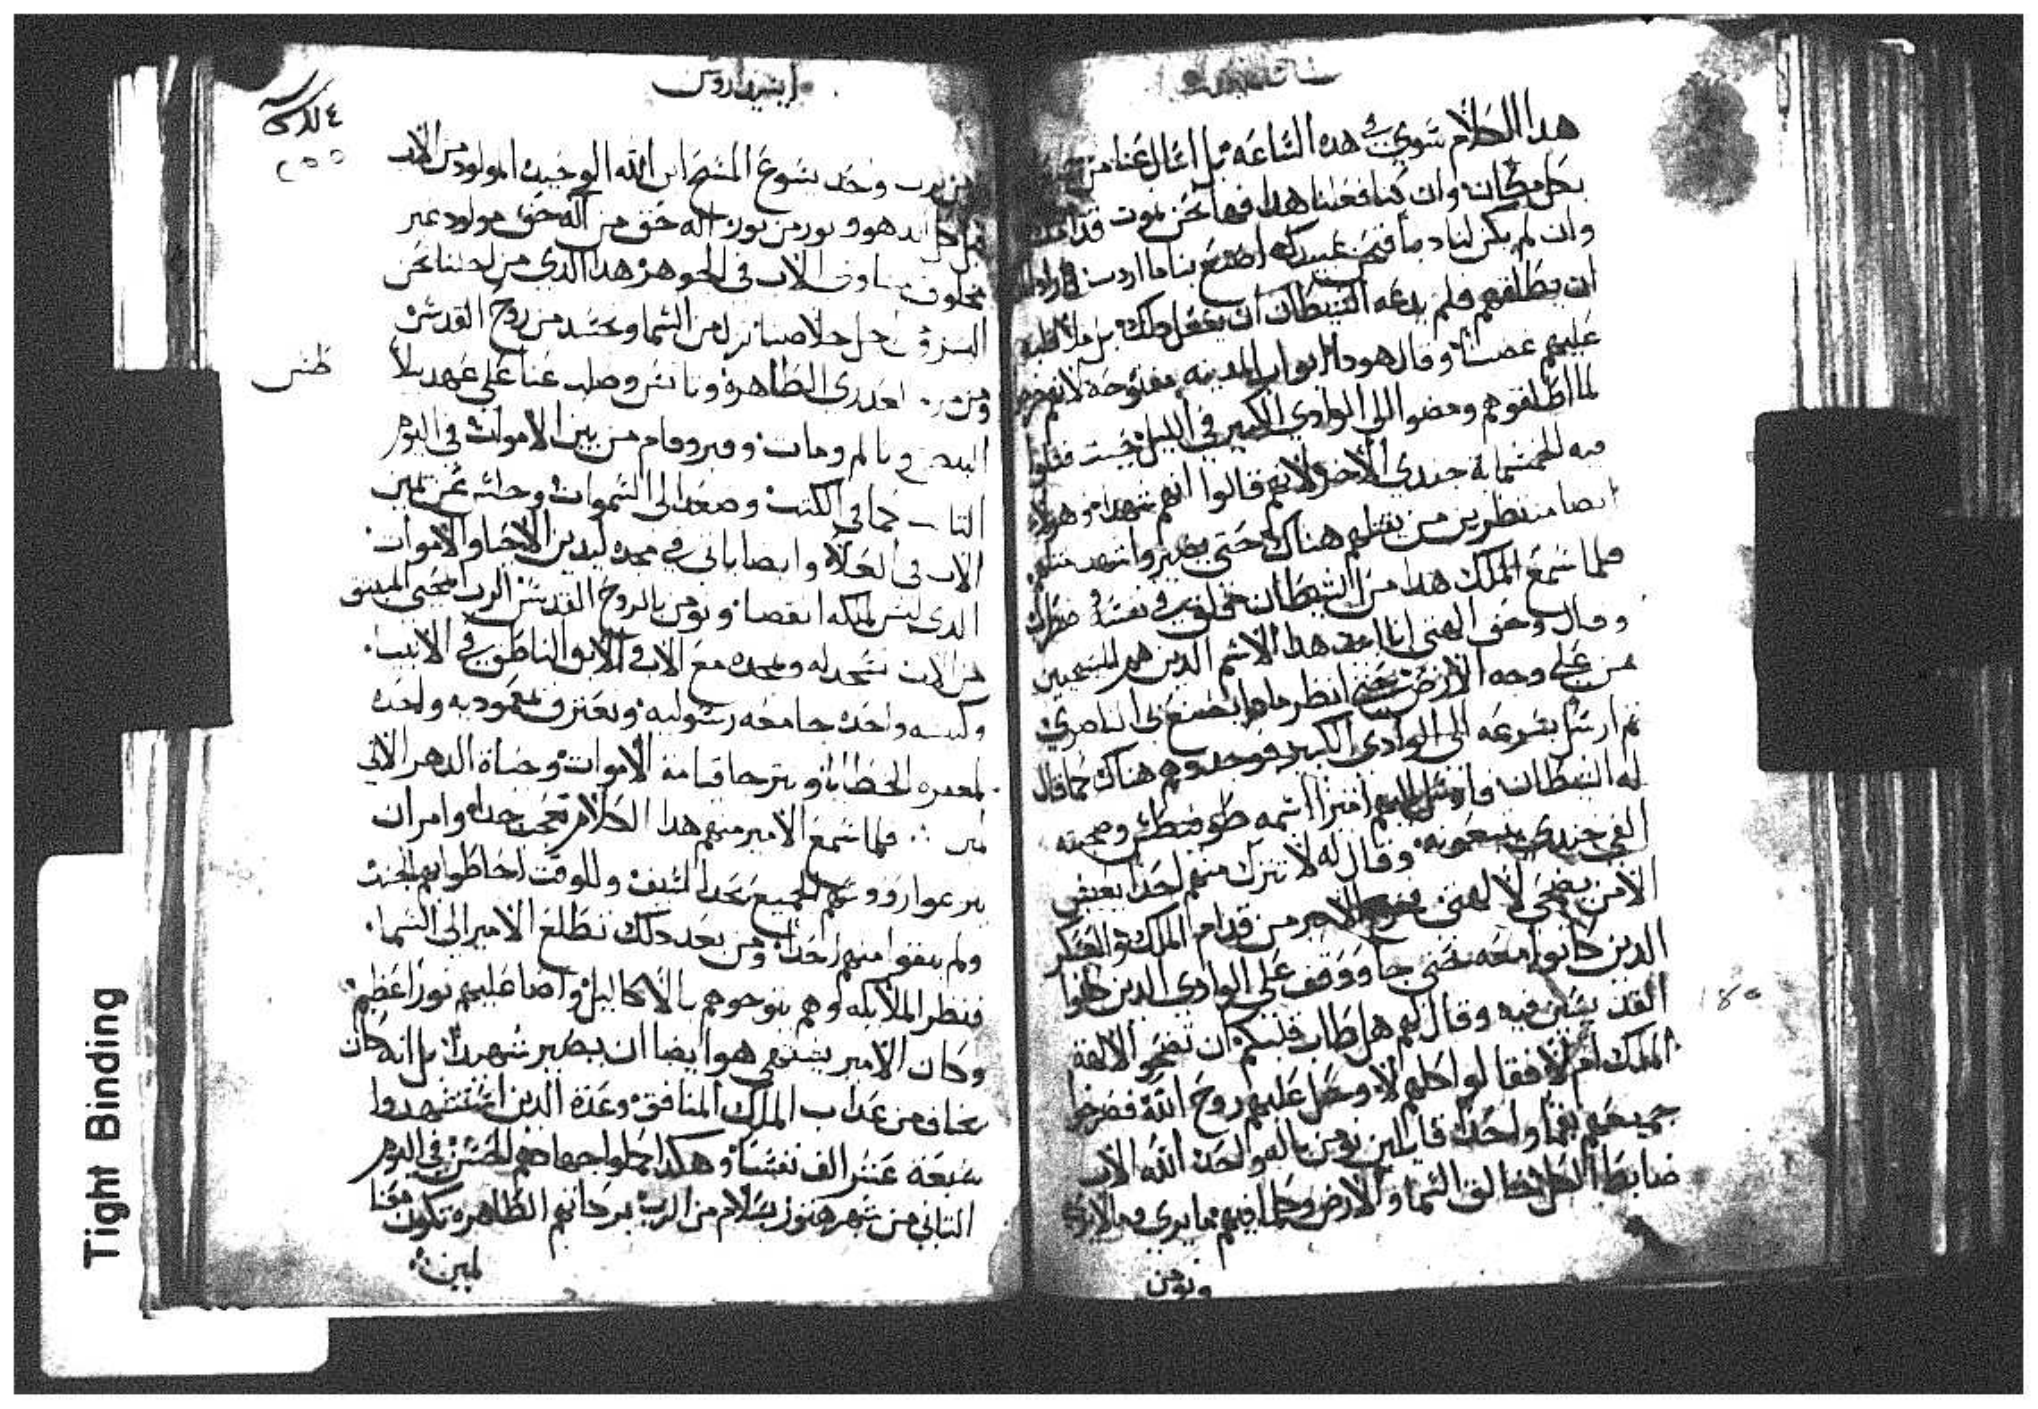 هدا الكلام شوي في هده الساعه بل اسال عنا من
بكل مكان وان كنا فعلنا هدا فها نحن نموت قدامك
وان لم يكن لنا دما فنحن عبيدك اصنع بنا ما اردت فاراد
ان يطلقهم فلم يدعه الشيطان ان يفعل دلك بل ملا قلبه
عليهم غضبا وقال هودا ابواب المدينه مفتوحه لانهم خرجوا
لما اطلقوهم ومضوا الى الوادي الكبير في الليل حيث قتلوا
فيه الخمسماية جندي الاخر لانهم قالوا انهم شهدا وهولا
ايضا منتظرين من يقتلهم هناك حتى يصيروا شهدا مثلهم
فلما سمع الملك هدا من الشيطان حلف في نفسه
وقال وحق الهتي انا امحق هدا الاسم الدين هم المسيحيين
من على وجه الارض حتى انظر مادا يصنع بي الناصري
تم ارسل بسرعه الى الوادي الكبير فوجدوهم هناك كما قال
له الشيطان فارسل اليهم اميرا اسمه وصحبته
الفي جندي يتبعونه وقال له لا تترك منهم احدا يعيش
الا من يضحي لالهتي فخرج الامير من قدام الملك والعسكر
الدين كانوا معه فضي جا ووقف على الوادي الدين كانوا
القديسين فيه وقال لهم هل طاب قلبكم ان تضحوا لالهة
الملك ام لا فقالوا كلهم لا وحل عليهم روح الله فصرخوا
جميعهم بفم واحد قايلين نومن باله واحد الله الاب
ضابط الكل خالق السما والارض وكلما فيهم ما يرى وما لا يرى
ونومن
ابيب
٤ كراسه
٢٥٥
نومن برب واحد يسوع المسيح ابن الله الوحيد المولود من الاب
قبل كل الدهور نور من نور اله حق من اله حق مولود غير
مخلوق مساوي الاب في الجوهر هدا الدي من اجلنا نحن
البشر ومن اجل خلاصنا نزل من السما وتجسد من روح القدس
ومن مريم العدرى الطاهره وتانس وصلب عنا على عهد بيلاطس
البنطي وتالم ومات وقبر وقام من بين الاموات في اليوم
التالت كما في الكتب وصعد الى السموات وجلس عن يمين
الاب في العلا وايضا ياتي في مجده ليدين الاحيا والاموات
الدي ليس لملكه انقضا ونومن بالروح القدس الرب المحيي المنبثق
من الاب نسجد له ونمجده مع الاب والابن الناطق في الانبيا
وكنيسه واحده جامعه رسوليه ونعترف بمعموديه واحده
لمغفرة الخطايا ونترجا قيامة الاموات وحياة الدهر الاتي
امين فلما سمع الامير منهم هدا الكلام تعجب جدا وامر ان
ينزعوا رووسهم الجميع بحد السيف وللوقت احاطوا بهم الجند
ولم يبقوا منهم احدا ومن بعد دلك تطلع الامير الى السما
فنظر الملايكه وهم يتوجوهم بالاكاليل واضا عليهم نورا عظيم
وكان الامير يشتهي هو ايضا ان يصير شهيدا بل انه كان
يخاف من عداب الملك المنافق وعدة الدين استشهدوا
سبعة عشر الف نفسا وهكدا اكملوا جهادهم الحسن في اليوم
التاني من شهر هتور بسلام من الرب بركاتهم الطاهره تكون معنا
امين